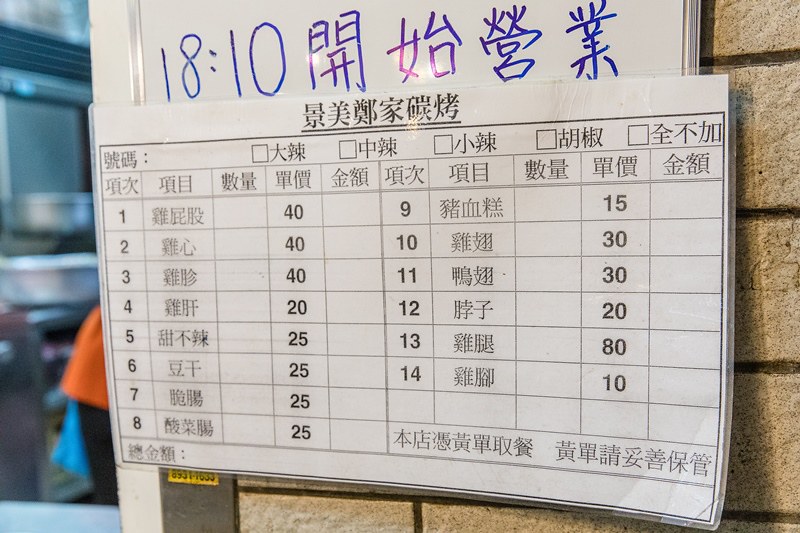 18:10開始營業
景美鄭家碳烤
號碼： □大辣 □中辣 □小辣 □胡椒 □全不加
項次 項目 數量 單價 金額 項次 項目 數量 單價 金額
1 雞屁股 40 9 豬血糕 15
2 雞心 40 10 雞翅 30
3 雞胗 40 11 鴨翅 30
4 雞肝 20 12 脖子 20
5 甜不辣 25 13 雞腿 80
6 豆干 25 14 雞腳 10
7 脆腸 25
8 酸菜腸 25
總金額： 本店憑黃單取餐 黃單請妥善保管